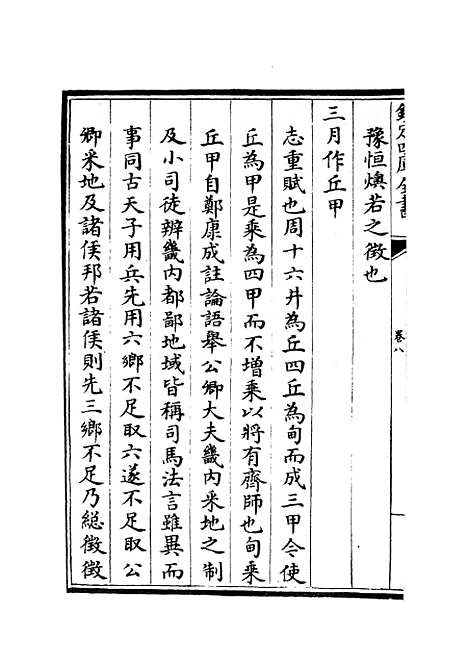 欽定四庫全書
卷八
豫恒燠若之徴也
三月作丘甲
志重賦也周十六井為丘四丘為甸而成三甲令使
丘為甲是乘為四甲而不增乘以將有齊師也甸乘
丘甲自鄭康成註論語舉公卿大夫畿内采地之制
及小司徒辨畿内都鄙地域皆稱司馬法言雖異而
事同古天子用兵先用六鄉不足取六遂不足取公
卿采地及諸侯邦若諸侯則先三鄉不足乃總徴徴